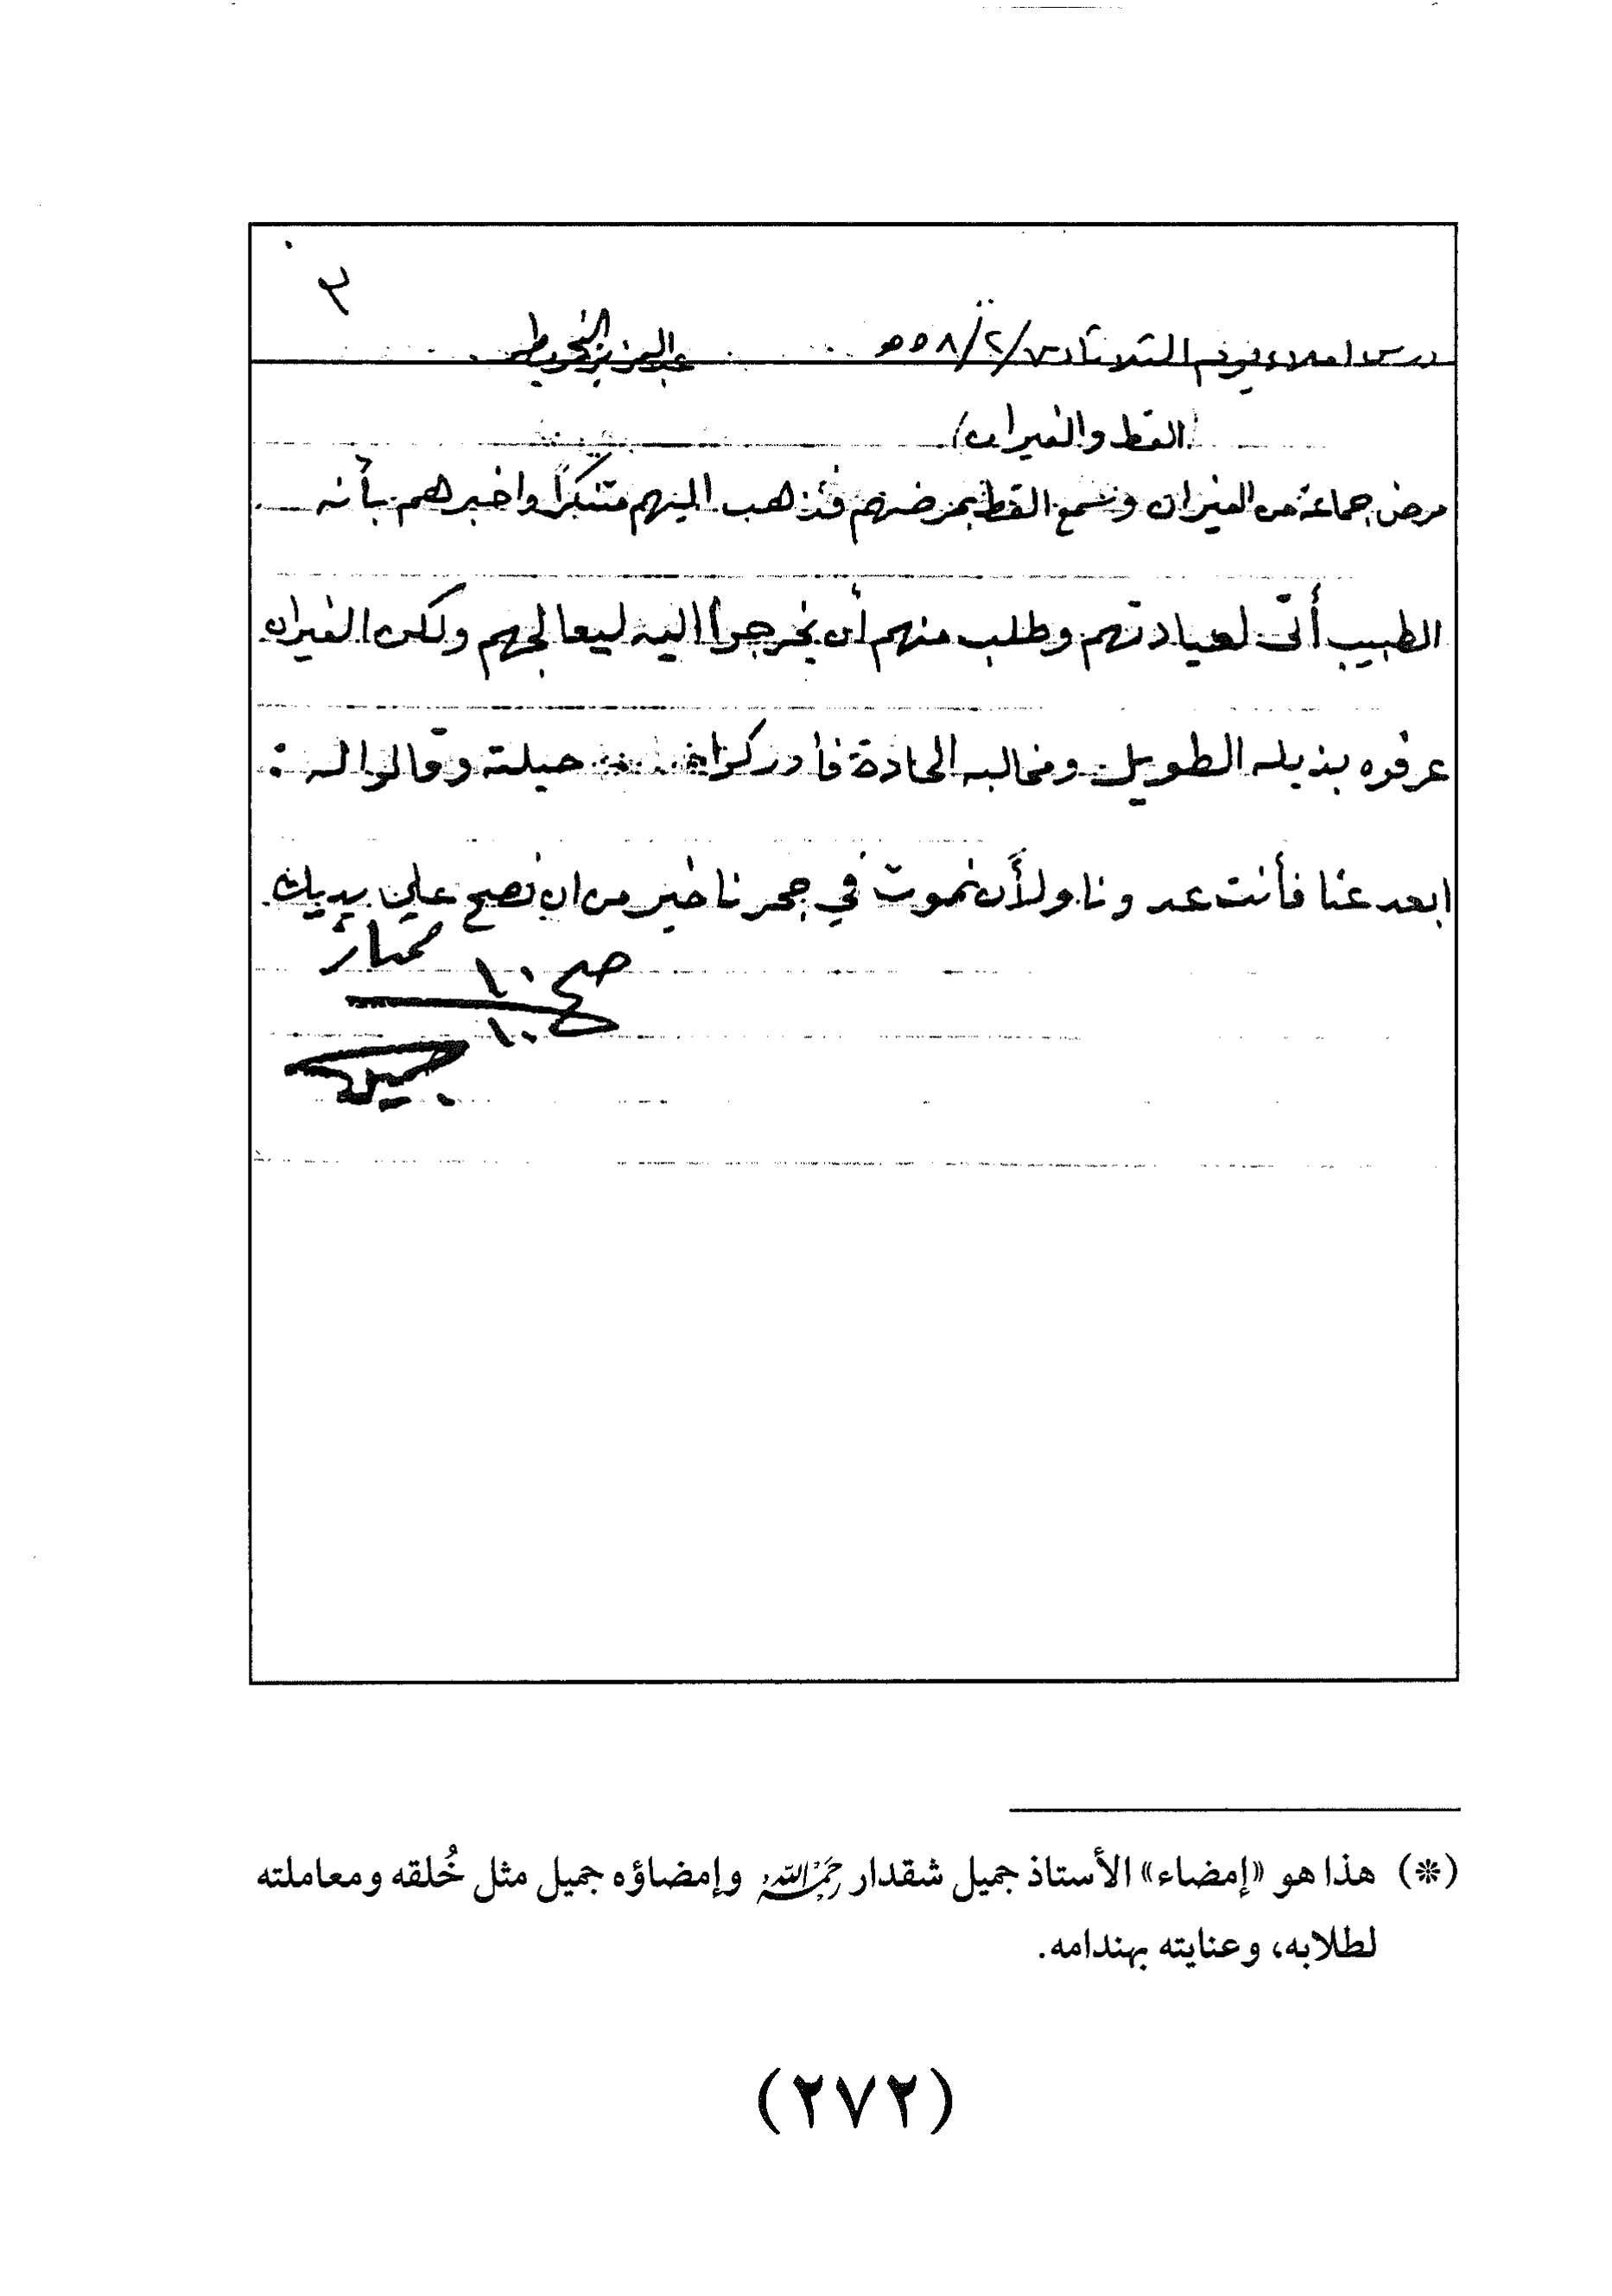 ٢
درس املاء يوم الثلاثاء ٧/٢/٥٥٨ هـ عبدالعزيز الخويطر
(القط والفيران)
مرض جماعة من الفيران وسمع القط بمرضهم فذهب اليهم متنكراً واخبرهم بأنه
الطبيب أتى لعيادتهم وطلب منهم أن يخرجوا اليه ليعالجهم ولكن الفيران
عرفوه بذيله الطويل ومخالبه الحادة فأدركوا حيلته وقالوا له :
ابعد عنا فأنت عدونا ولأن نموت في جحرنا خير من ان نصح على يديك
ممتاز
صح ١٠
١٠
جميل
(*) هذا هو «إمضاء» الأستاذ جميل شقدار رحمه الله وإمضاؤه جميل مثل خُلقه ومعاملته
لطلابه، وعنايته بهندامه.
(٢٧٢)